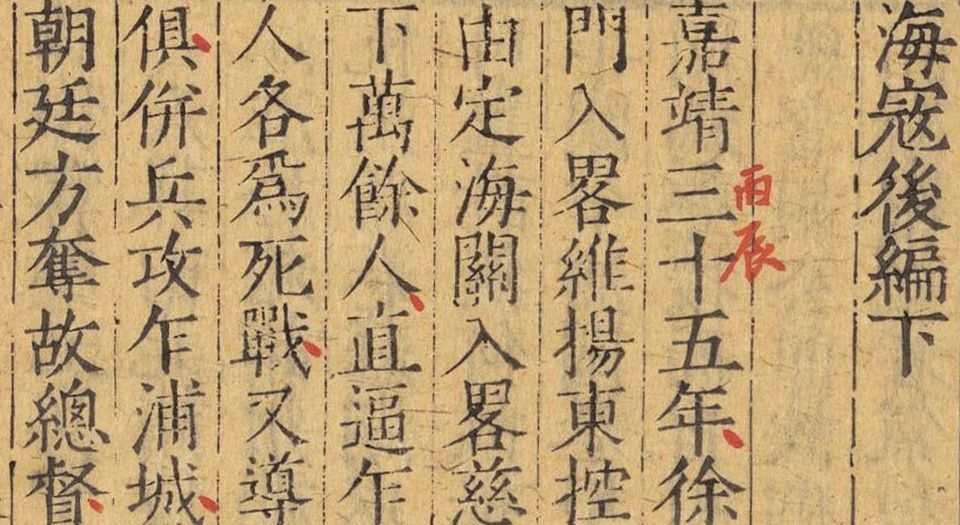 海寇後編下
丙辰
嘉靖三十五年徐
門入畧維揚東控
由定海關入畧慈
下萬餘人直逼乍
人各爲死戰又導
俱併兵攻乍浦城
朝廷方奪故總督